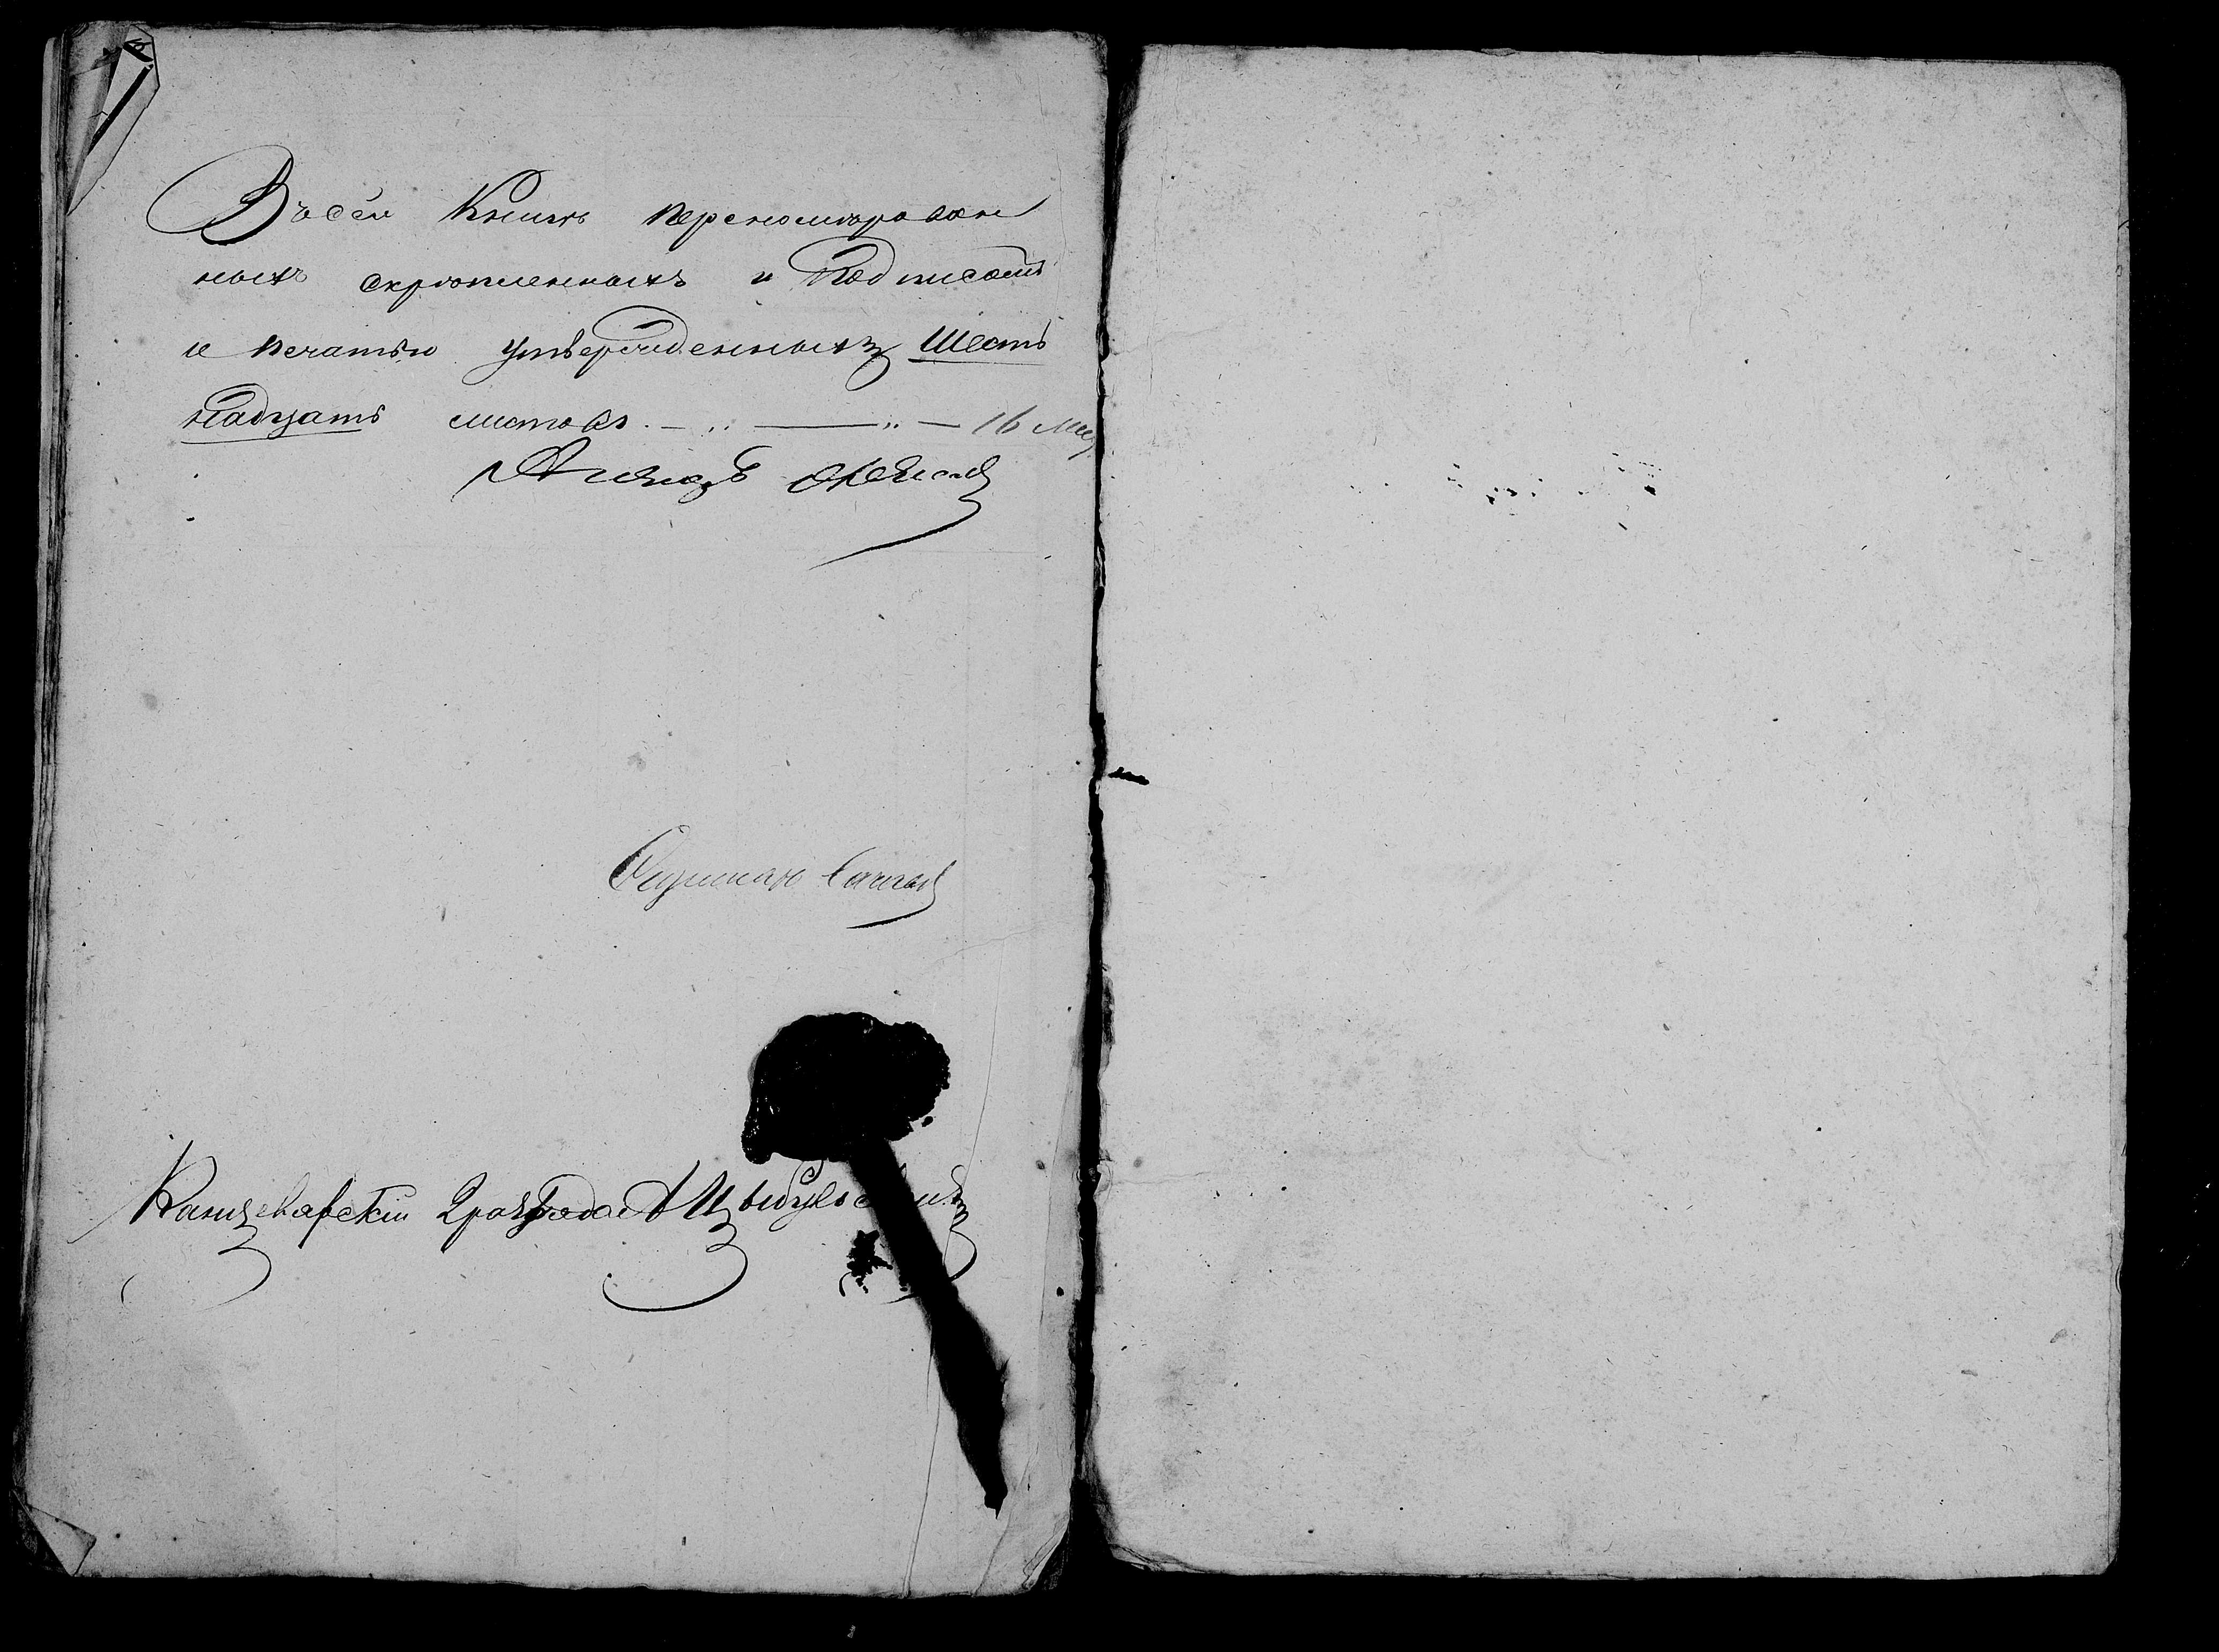 Въ сей Книгѣ переномирован
ныхъ скрѣпленныхъ и Подписомъ
и печатью утвержденныхъ Шест
надцать листовъ. — „ — „ — 16 лис
Канцелярскій 2 разряда А Цыбульскій